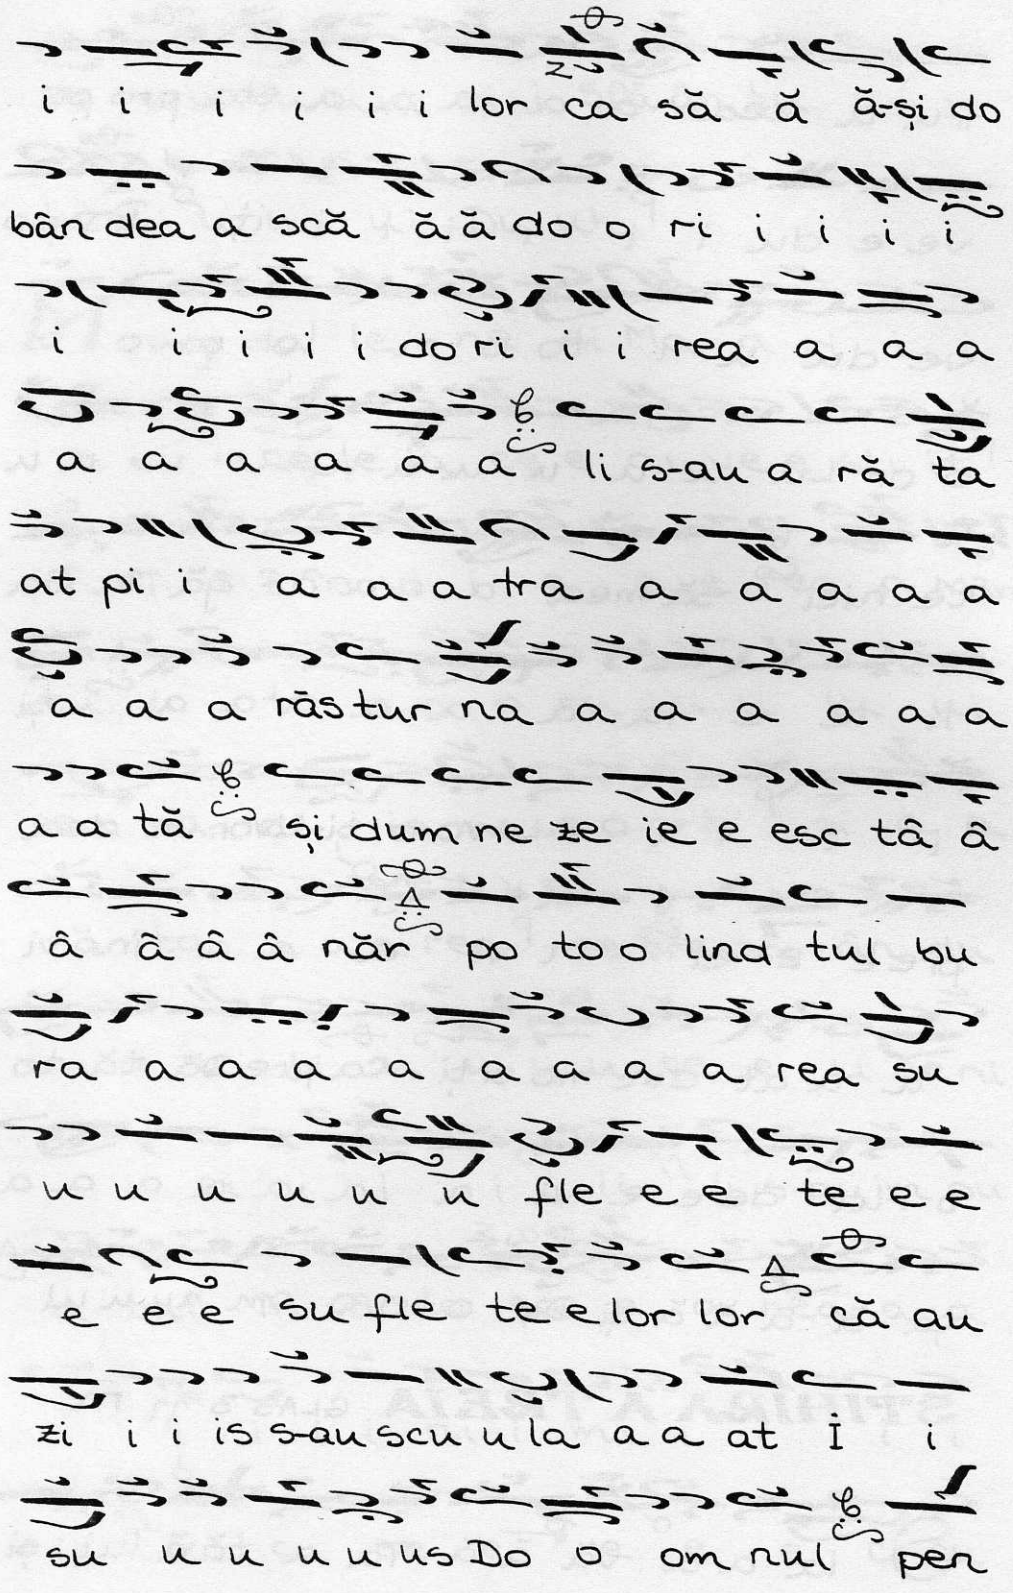 i i i i i i lor ca să ă ă-și do
bân dea a scă ă ă do o ri i i i i
i i i i i do ri i i rea a a a
a a a a a a li s-au a ră ta
at pi i a a a tra a a a a a
a a a răs tur na a a a a a a
a a tă și dum ne ze ie e esc tâ â
â â â â năr po to o lind tul bu
ra a a a a a a a a rea su
u u u u u u fle e e te e e
e e e su fle te e lor lor că au
zi i i is s-au scu u la a a at I i
su u u u u us Do o om nul pen